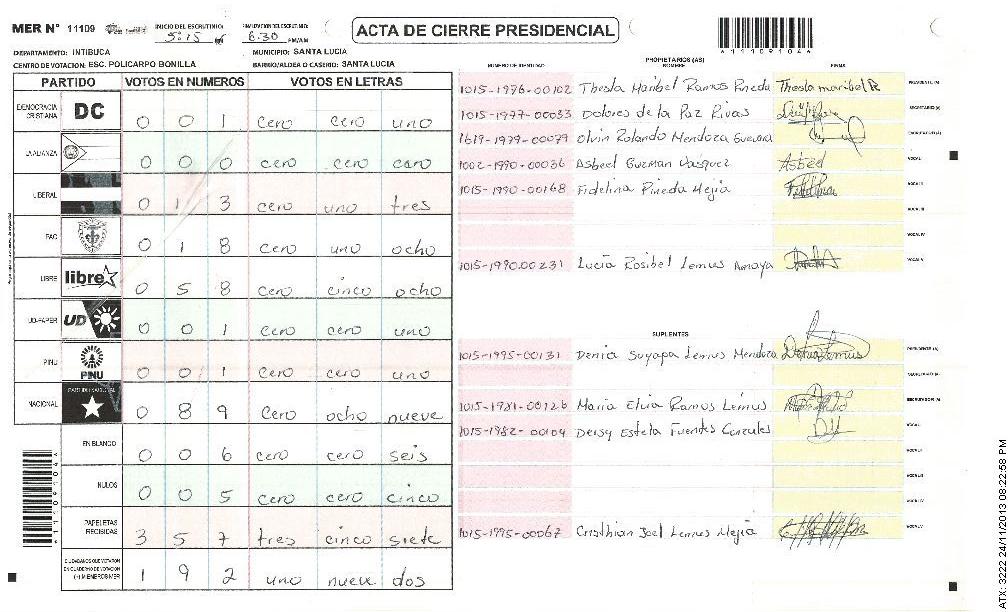 MER N° 11109
INICIO DEL ESCRUTINIO: 5:15
FINALIZACION DEL ESCRUTINIO: 6:30 PM/AM
ACTA DE CIERRE PRESIDENCIAL
DEPARTAMENTO: INTIBUCA
MUNICIPIO: SANTA LUCIA
CENTRO DE VOTACION: ESC. POLICARPO BONILLA
BARRIO/ALDEA O CASERIO: SANTA LUCIA
PARTIDO VOTOS EN NUMEROS VOTOS EN LETRAS
DEMOCRACIA CRISTIANA DC 0 0 1 cero cero uno
LA ALIANZA 0 0 0 cero cero cero
LIBERAL 0 1 3 cero uno tres
PAC 0 1 8 cero uno ocho
LIBRE libre 0 5 8 cero cinco ocho
UD-FAPER UD 0 0 1 cero cero uno
PINU PINU 0 0 1 cero cero uno
NACIONAL PARTIDO NACIONAL 0 8 9 cero ocho nueve
EN BLANCO 0 0 6 cero cero seis
NULOS 0 0 5 cero cero cinco
PAPELETAS RECIBIDAS 3 5 7 tres cinco siete
CIUDADANOS QUE VOTARON EN CUADERNO DE VOTACION (+) MIEMBROS MER 1 9 2 uno nueve dos
PROPIETARIOS (AS)
NUMERO DE IDENTIDAD NOMBRE FIRMA
1015-1976-00102 Thesla Maribel Ramos Pineda Thesla maribel R PRESIDENTE (A)
1015-1977-00033 Dolores de la Paz Rivas SECRETARIO (A)
1619-1979-00079 Olvin Rolando Mendoza Guevara ESCRUTADOR (A)
1002-1990-00036 Asbeel Guzman Vasquez Asbeel VOCAL I
1015-1990-00168 Fidelina Pineda Mejia VOCAL II
VOCAL III
VOCAL IV
1015-1990-00231 Lucia Rosibel Lemus Amaya VOCAL V
SUPLENTES
1015-1995-00131 Denia Suyapa Lemus Mendoza PRESIDENTE (A)
SECRETARIO (A)
1015-1981-00126 Maria Elvia Ramos Lemus ESCRUTADOR (A)
1015-1982-00104 Deisy Estela Fuentes Gonzales VOCAL I
VOCAL II
VOCAL III
VOCAL IV
1015-1995-00067 Cristhian Joel Lemus Mejia VOCAL V
ATX: 3222 24/11/2013 08:22:58 PM